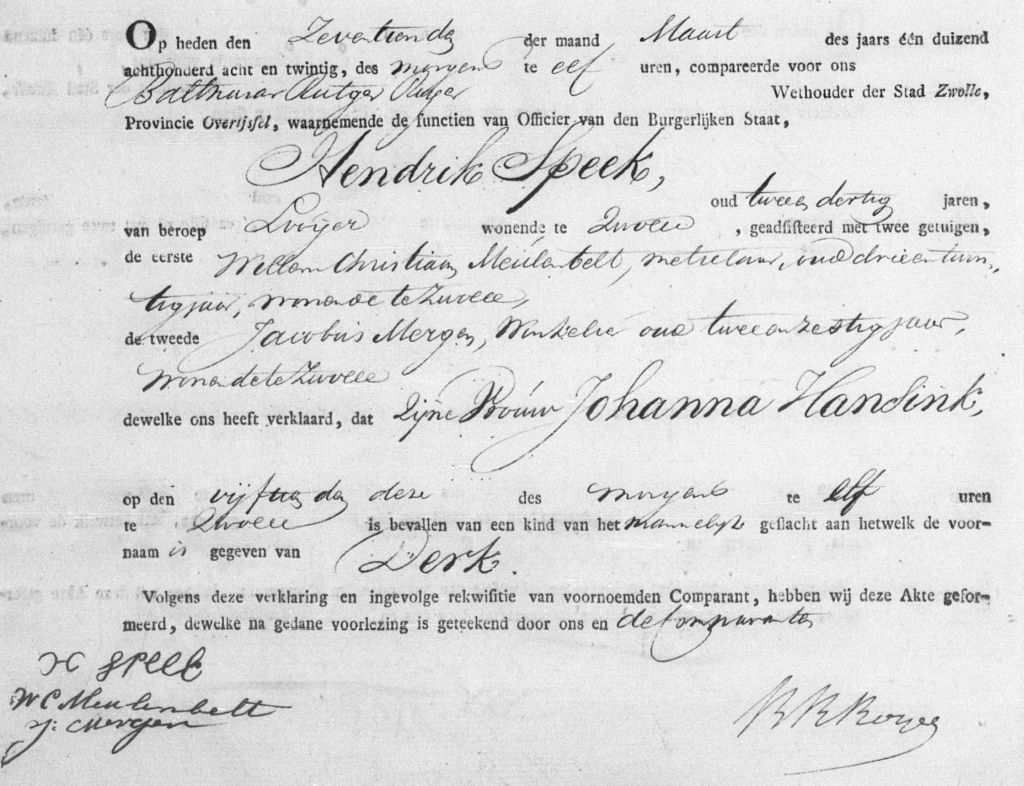 Op heden den Zeventienden der maand Maart des jaars één duizend
achthonderd acht en twintig, des morgens te elf uren, compareerde voor ons
Balthazar Rutger Wethouder der Stad Zwolle,
Provincie Overijssel, waarnemende de functien van Officier van den Burgerlijken Staat,
Hendrik Speek,
oud twee dertig jaren,
van beroep Looijer wonende te Zwolle, geadsisteerd met twee getuigen,
de eerste Willem Christiaan Meulenbelt, metselaar, oud drieentwin-
tig jaar, wonende te Zwolle,
de tweede Jacobus Mergen, Winkelier oud twee en zestig jaar,
wonende te Zwolle
dewelke ons heeft verklaard, dat Zijne Vrouw Johanna Handink,
op den vijftienden deze des morgens te elf uren
te Zwolle is bevallen van een kind van het mannelijk geslacht aan hetwelk de voor-
naam is gegeven van Derk.
Volgens deze verklaring en ingevolge rekwisitie van voornoemden Comparant, hebben wij deze Akte gefor-
meerd, dewelke na gedane voorlezing is geteekend door ons en de Comparanten
H Speek
W C Meulenbelt
J: Mergen